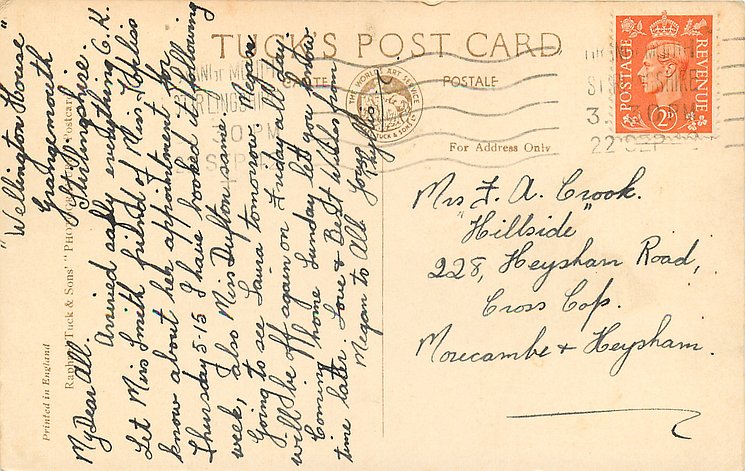 TUCK'S POST CARD
CARTE POSTALE
THE WORLD'S ART SERVICE
TUCK & SONS LTD
For Address Only
POSTAGE REVENUE
2D
STIRLINGSHIRE
3. 30 PM
22 SEP
Printed in England
Raphael Tuck & Sons' "PHOTOGRAPHIC" Postcard
"Wellington House"
Grangemouth
Stirlingshire.
22
My Dear All.
Arrived safely everything O.K.
Let Miss Smith friend of Miss
know about her appointment for
Thursday 5-15 I have booked it following
week, also Miss Duffonsire. Megan
Going to see Laura tomorrow.
will be off again on Friday all day
Coming home Sunday let you know
time later. Love & Best Wishes from
Megan to All. Yours
Phyllis
Mrs F. A. Crook.
"Hillside"
228, Heysham Road,
Cross Cop.
Morecambe & Heysham.